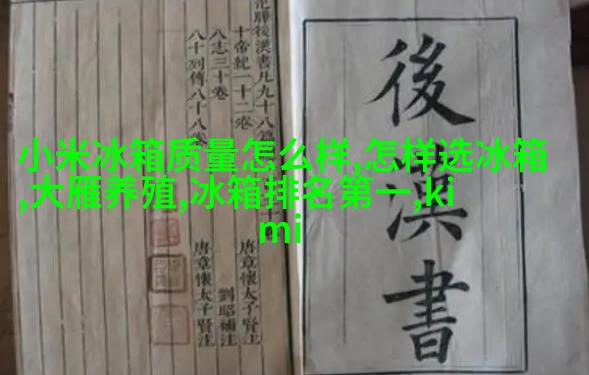 小米冰箱质量怎么样,怎样选冰箱
,大雁养殖,冰箱排名第一,ki
mi
後漢書
范曄後漢書凡九十八篇
十帝紀一十二卷
八志三十卷
八十列傳八十八卷
唐章懷太子賢注
劉昭補注
唐章懷太子賢注